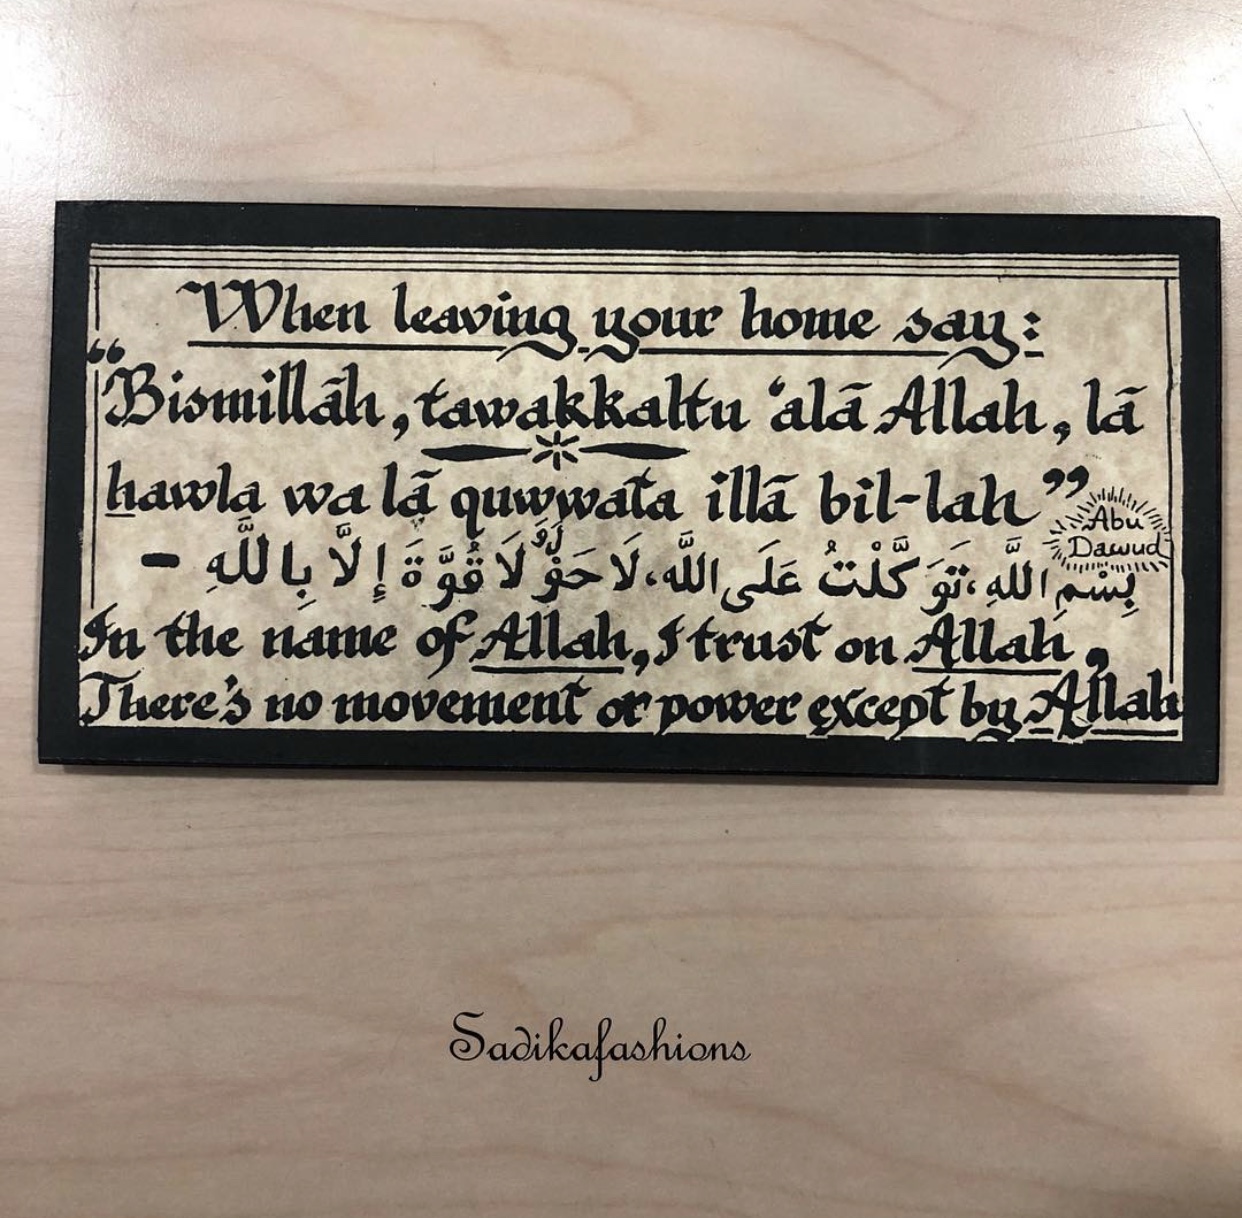 When leaving your home say:
“Bismillāh, tawakkaltu ‘alā Allah, lā
hawla wa lā quwwata illā bil-lah”
Abu
Dawud
بِسْمِ اللَّهِ، تَوَكَّلْتُ عَلَى اللَّه، لَا حَوْلَ وَلَا قُوَّةَ إِلَّا بِاللَّهِ -
In the name of Allah, I trust on Allah,
There's no movement or power except by Allah
Sadikafashions